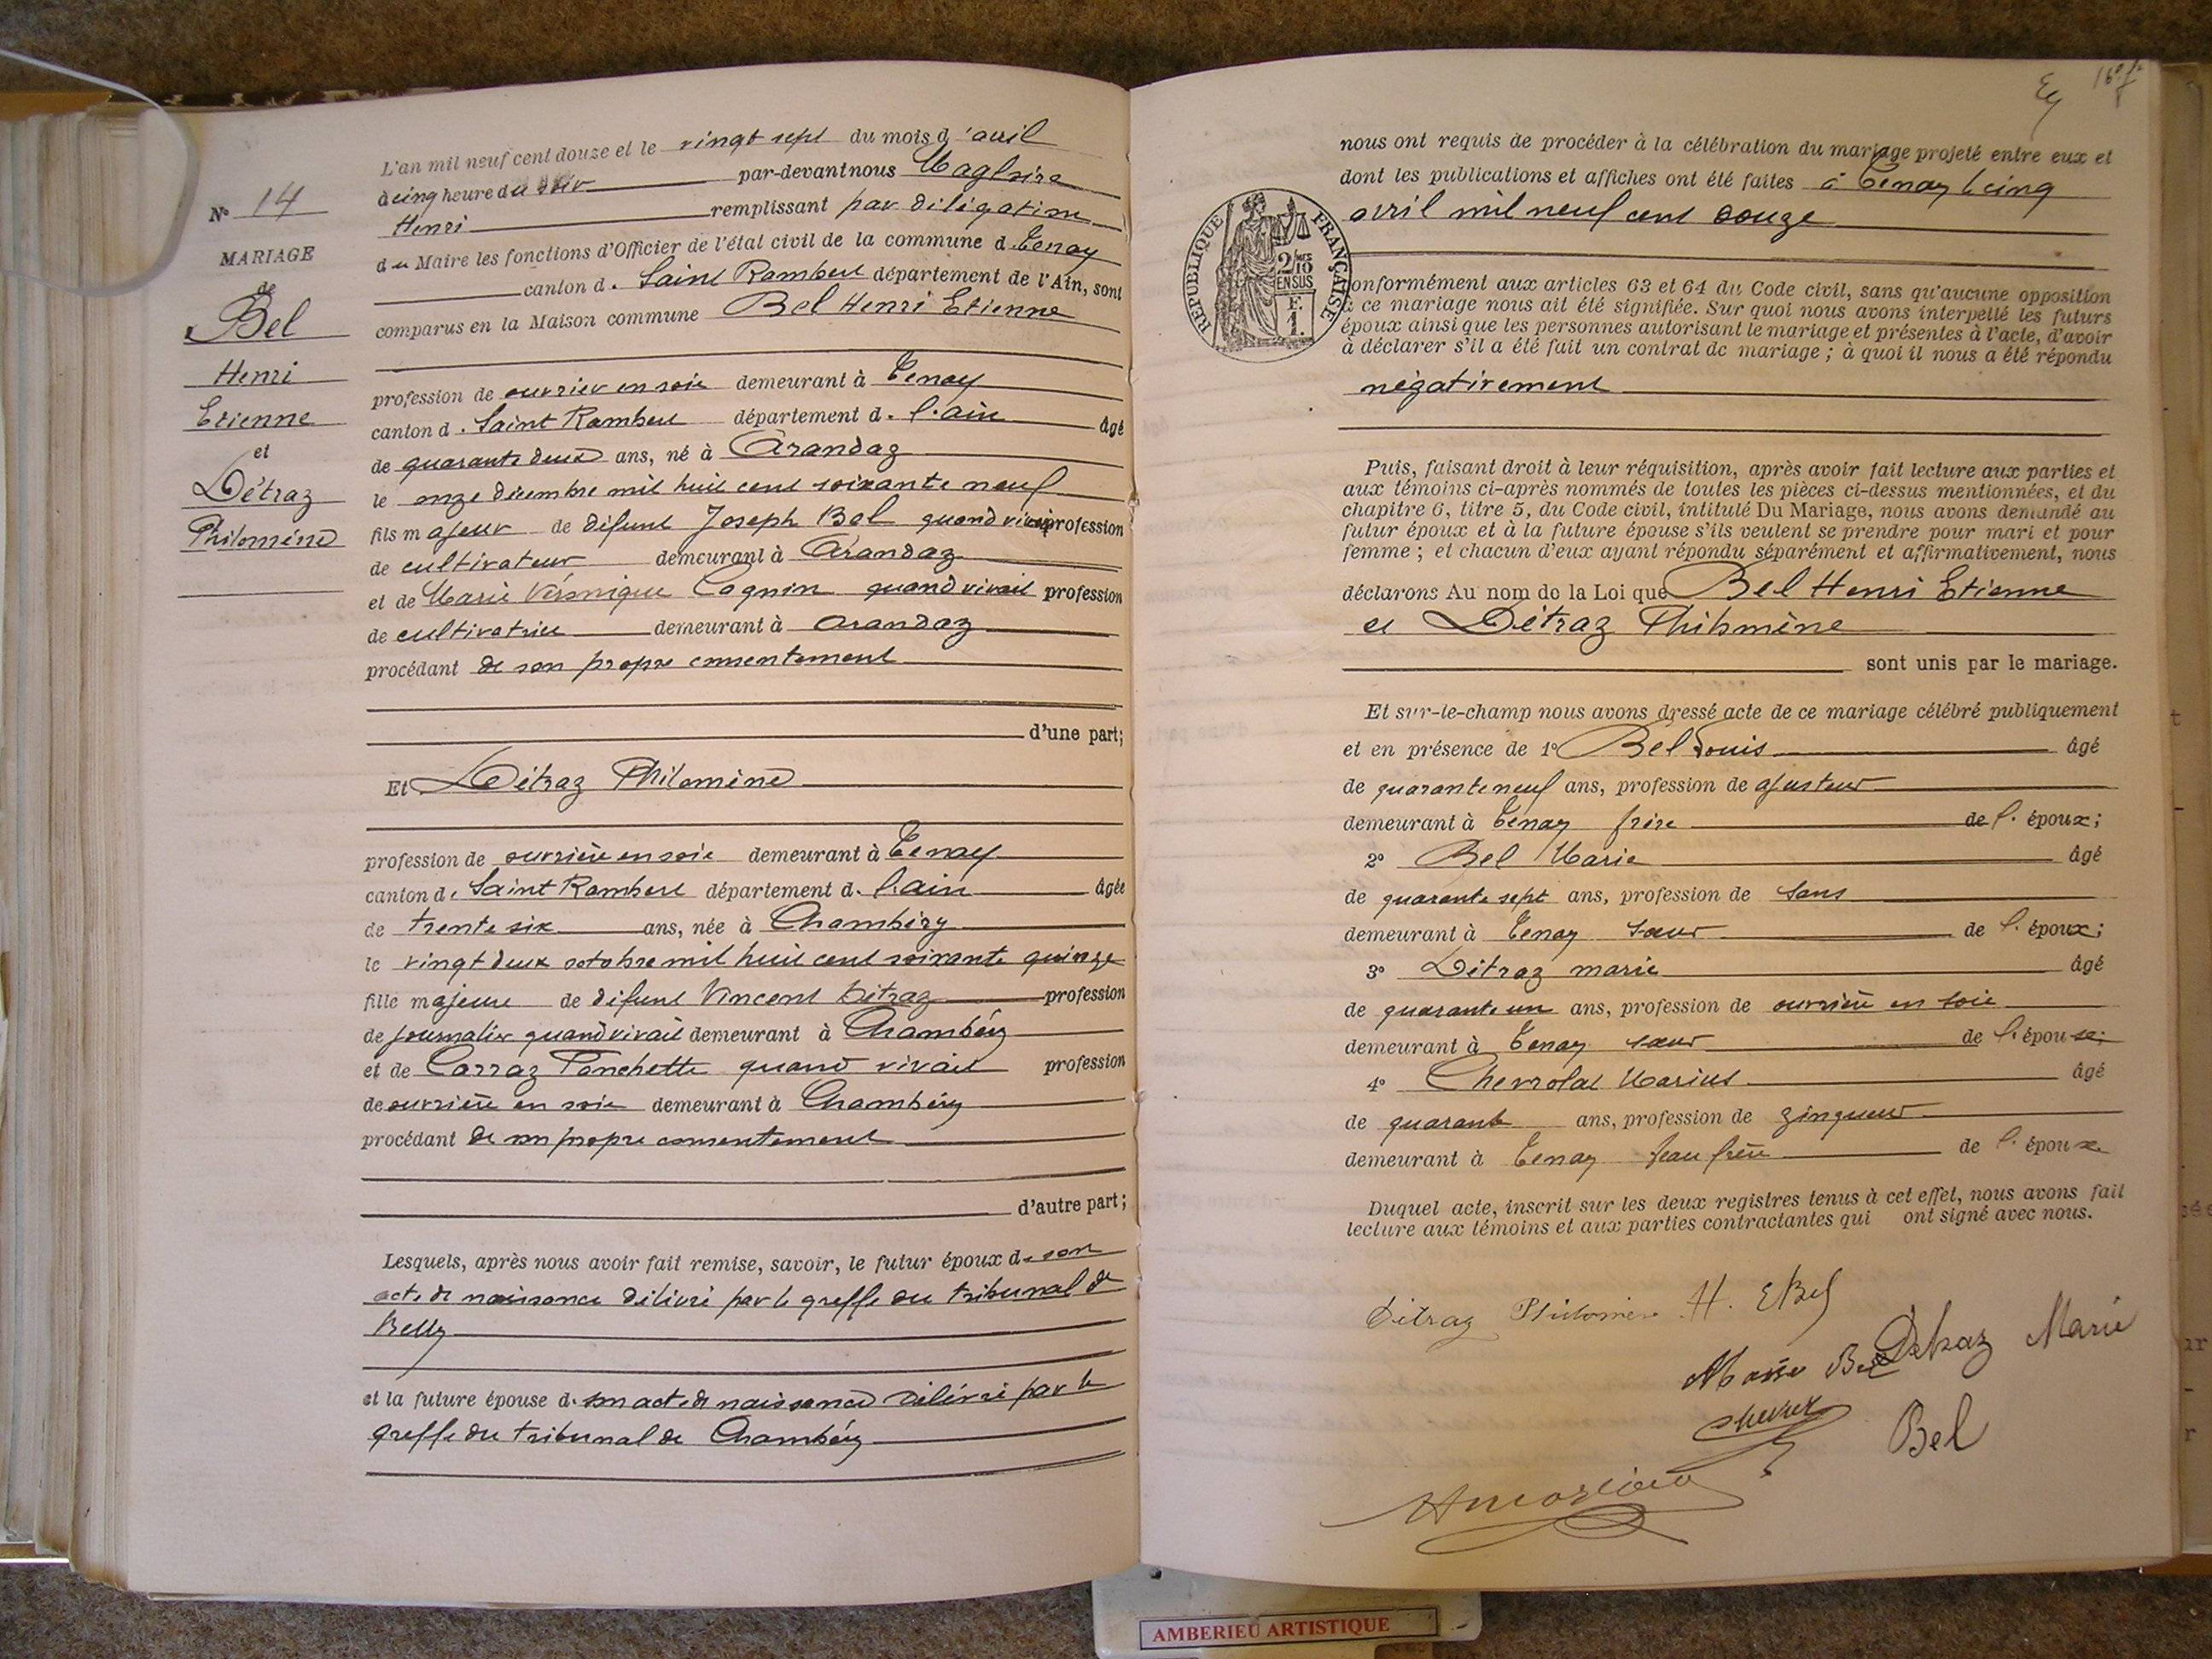 L'an mil neuf cent douze et le vingt sept du mois d'avril
à cinq heure du soir par-devant nous Magloire
Henri remplissant par délégation
du Maire les fonctions d'Officier de l'état civil de la commune d. Tenay
canton d. Saint Rambert département de l'Ain, sont
comparus en la Maison commune Bel Henri Etienne
profession de ouvrier en soie demeurant à Tenay
canton d. Saint Rambert département d. l'ain âgé
de quarante deux ans, né à Arandaz
le onze décembre mil huit cent soixante neuf
fils majeur de défunt Joseph Bel quand vivait profession
de cultivateur demeurant à Arandaz
et de Marie Véronique Cognin quand vivait profession
de cultivatrice demeurant à arandaz
procédant de son propre consentement
d'une part;
Et Détraz Philomène
profession de ouvrière en soie demeurant à Tenay
canton d. Saint Rambert département d. l'ain âgée
de trente six ans, née à Chambéry
le vingt deux octobre mil huit cent soixante quinze
fille majeure de défunt Vincent Détraz profession
de journalier quand vivait demeurant à Chambéry
et de Carraz Fanchette quand vivait profession
de ouvrière en soie demeurant à Chambéry
procédant de son propre consentement
d'autre part;
Lesquels, après nous avoir fait remise, savoir, le futur époux d. son
acte de naissance délivré par le greffe du tribunal de
Belley
et la future épouse d. son acte de naissance délivré par le
greffe du tribunal de Chambéry
No 14
MARIAGE
de
Bel
Henri
Etienne
et
Détraz
Philomène
nous ont requis de procéder à la célébration du mariage projeté entre eux et
dont les publications et affiches ont été faites à Tenay le cinq
avril mil neuf cent douze
RÉPUBLIQUE FRANÇAISE
2/10 MES
EN SUS
F.
1.
onformément aux articles 63 et 64 du Code civil, sans qu'aucune opposition
à ce mariage nous ait été signifiée. Sur quoi nous avons interpellé les futurs
époux ainsi que les personnes autorisant le mariage et présentes à l'acte, d'avoir
à déclarer s'il a été fait un contrat de mariage; à quoi il nous a été répondu
négativement
Puis, faisant droit à leur réquisition, après avoir fait lecture aux parties et
aux témoins ci-après nommés de toutes les pièces ci-dessus mentionnées, et du
chapitre 6, titre 5, du Code civil, intitulé Du Mariage, nous avons demandé au
futur époux et à la future épouse s'ils veulent se prendre pour mari et pour
femme; et chacun d'eux ayant répondu séparément et affirmativement, nous
déclarons Au nom de la Loi que Bel Henri Etienne
et Détraz Philomène
sont unis par le mariage.
Et sur-le-champ nous avons dressé acte de ce mariage célébré publiquement
et en présence de 1° Bel Louis âgé
de quarante neuf ans, profession de ajusteur
demeurant à Tenay frère de l'époux;
2° Bel Marie âgé
de quarante sept ans, profession de sans
demeurant à Tenay sœur de l'époux;
3° Détraz marie âgé
de quarante un ans, profession de ouvrière en soie
demeurant à Tenay sœur de l'épouse;
4° Chevrolat Marius âgé
de quarante ans, profession de zingueur
demeurant à Tenay beau frère de l'époux
Duquel acte, inscrit sur les deux registres tenus à cet effet, nous avons fait
lecture aux témoins et aux parties contractantes qui ont signé avec nous.
Détraz Philomène H. E Bel
Marie Bel Detraz Marie
Bel
AMBERIEU ARTISTIQUE